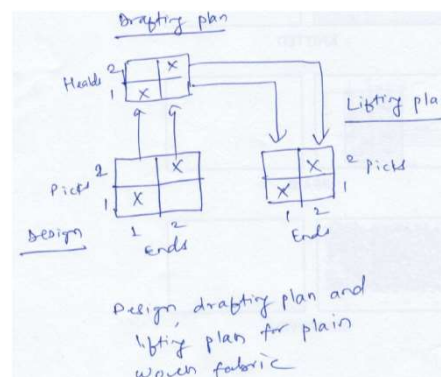 Drafting plan
Healds 2 X
1 X
Lifting pla
Picks 2 X
1 X
X 2 Picks
X 1
Design
1 2
Ends
1 2
Ends
Design, drafting plan and
lifting plan for plain
woven fabric